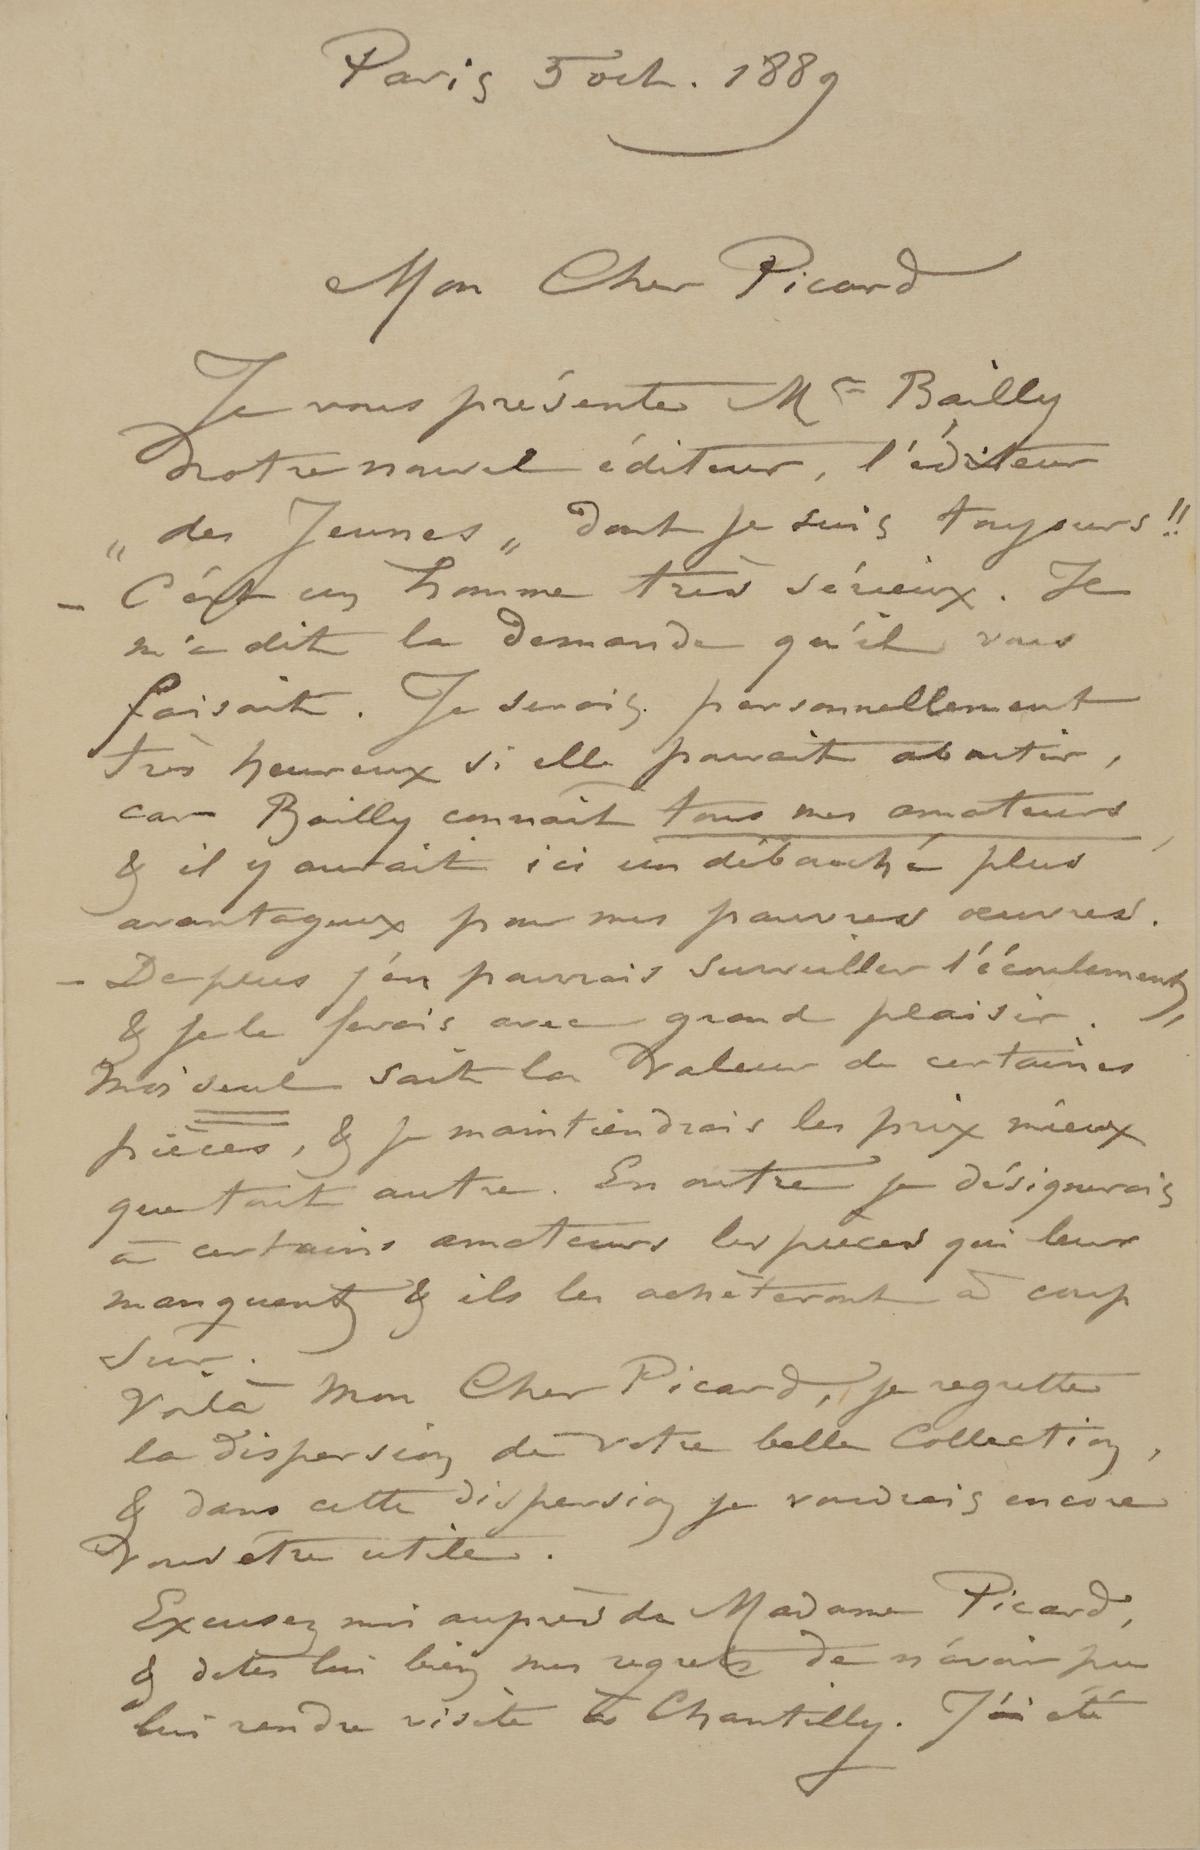 Paris 5 oct. 1889
Mon Cher Picard
Je vous présente Mr Bailly
notre nouvel éditeur, l'éditeur
„ des Jeunes „ dont je suis toujours !!
– C'est un homme très sérieux. Il
m'a dit la demande qu'il vous
faisait. Je serais personnellement
très heureux si elle pouvait aboutir,
car Bailly connaît tous mes amateurs
& il y aurait ici un débouché plus
avantageux pour mes pauvres œuvres.
– De plus j'en pourrais surveiller l'écoulement,
& je le ferais avec grand plaisir.
Moi seul sait la valeur de certaines
pièces, & je maintiendrais les prix mieux
que tout autre. En outre je désignerais
à certains amateurs les pièces qui leur
manquent & ils les achèteront à coup
sur.
Voilà mon Cher Picard, je regrette
la dispersion de votre belle Collection,
& dans cette dispersion je voudrais encore
vous être utile.
Excusez moi auprès de Madame Picard,
& dites lui bien mes regrets de n'avoir pu
lui rendre visite à Chantilly. J'ai été